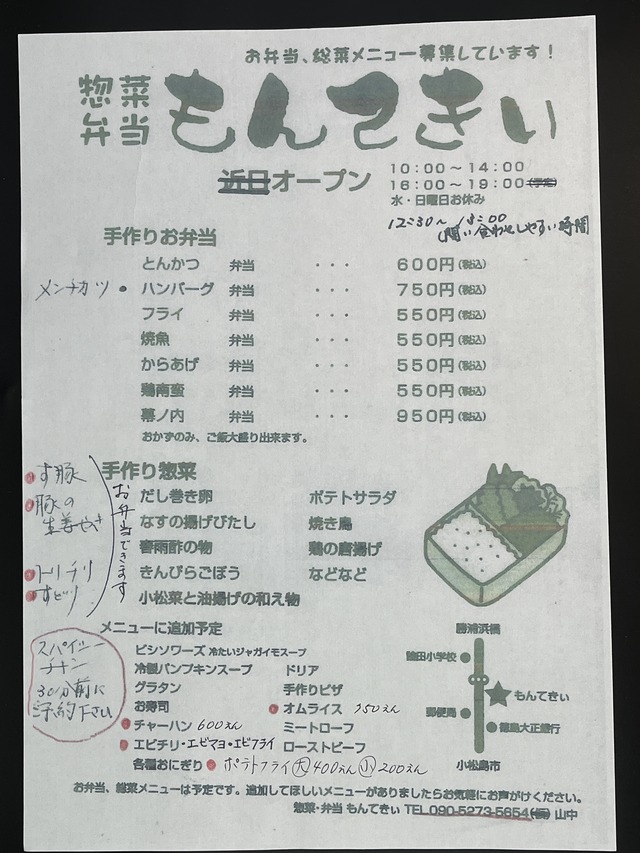 お弁当、総菜メニュー募集しています！
惣菜
弁当 もんてきぃ
近日オープン
10:00～14:00
16:00～19:00(予定)
水・日曜日お休み
12:30～13:00
問い合わせしやすい時間
手作りお弁当
とんかつ 弁当 ・・・ 600円(税込)
メンチカツ ・ ハンバーグ 弁当 ・・・ 750円(税込)
フライ 弁当 ・・・ 550円(税込)
焼魚 弁当 ・・・ 550円(税込)
からあげ 弁当 ・・・ 550円(税込)
鶏南蛮 弁当 ・・・ 550円(税込)
幕ノ内 弁当 ・・・ 950円(税込)
おかずのみ、ご飯大盛り出来ます。
手作り惣菜
だし巻き卵 ポテトサラダ
なすの揚げびたし 焼き鳥
春雨酢の物 鶏の唐揚げ
きんぴらごぼう などなど
小松菜と油揚げの和え物
す豚
豚の
生姜やき
トリチリ
すビツ
お弁当できます
メニューに追加予定
ビシソワーズ 冷たいジャガイモスープ
冷製パンプキンスープ ドリア
グラタン 手作りピザ
お寿司 オムライス 750えん
チャーハン 600えん ミートローフ
エビチリ・エビマヨ・エビフライ ローストビーフ
各種おにぎり ポテトフライ 大 400えん 小 200えん
スパイシー
チキン
30分前に
ご予約下さい
勝浦浜橋
郵便局
もんてきぃ
徳島大正銀行
小松島市
お弁当、総菜メニューは予定です。追加してほしいメニューがありましたらお気軽にお声がけください。
惣菜・弁当 もんてきぃ TEL 090-5273-5654 山中